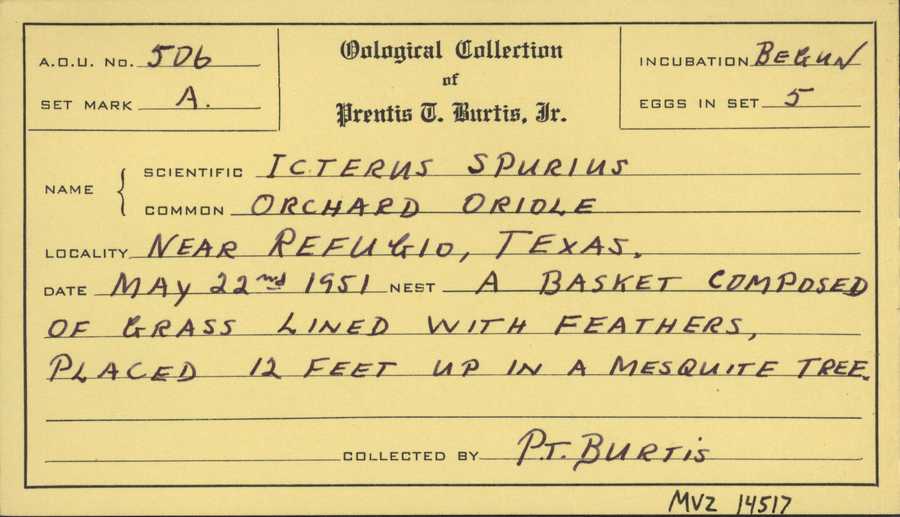 A.O.U. No. 506
SET MARK A.
Oological Collection
of
Prentis T. Burtis, Jr.
INCUBATION BEGUN
EGGS IN SET 5
NAME
SCIENTIFIC ICTERUS SPURIUS
COMMON ORCHARD ORIOLE
LOCALITY NEAR REFUGIO, TEXAS.
DATE MAY 22nd 1951 NEST A BASKET COMPOSED
OF GRASS LINED WITH FEATHERS,
PLACED 12 FEET UP IN A MESQUITE TREE.
COLLECTED BY P.T. BURTIS
MVZ 14517